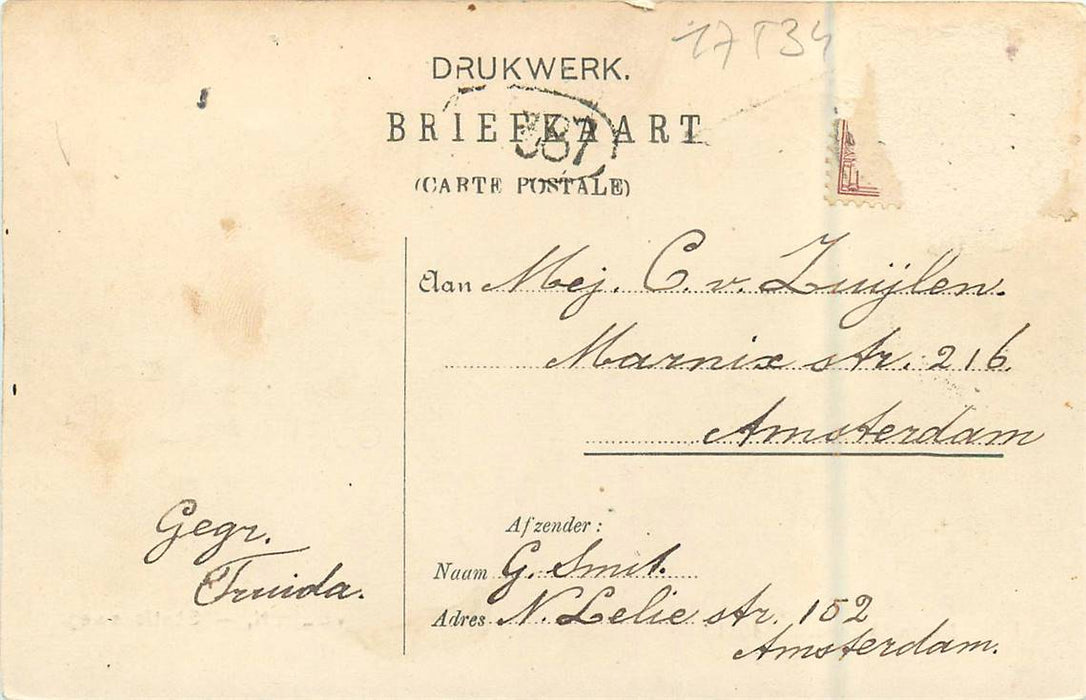 17 T 34
DRUKWERK.
BRIEFKAART
387
(CARTE POSTALE)
Aan Mej. C. v. Zuijlen.
Marnix str. 216.
Amsterdam
Gegr.
Truida.
Afzender:
Naam G. Smit.
Adres N. Lelie str. 152
Amsterdam.